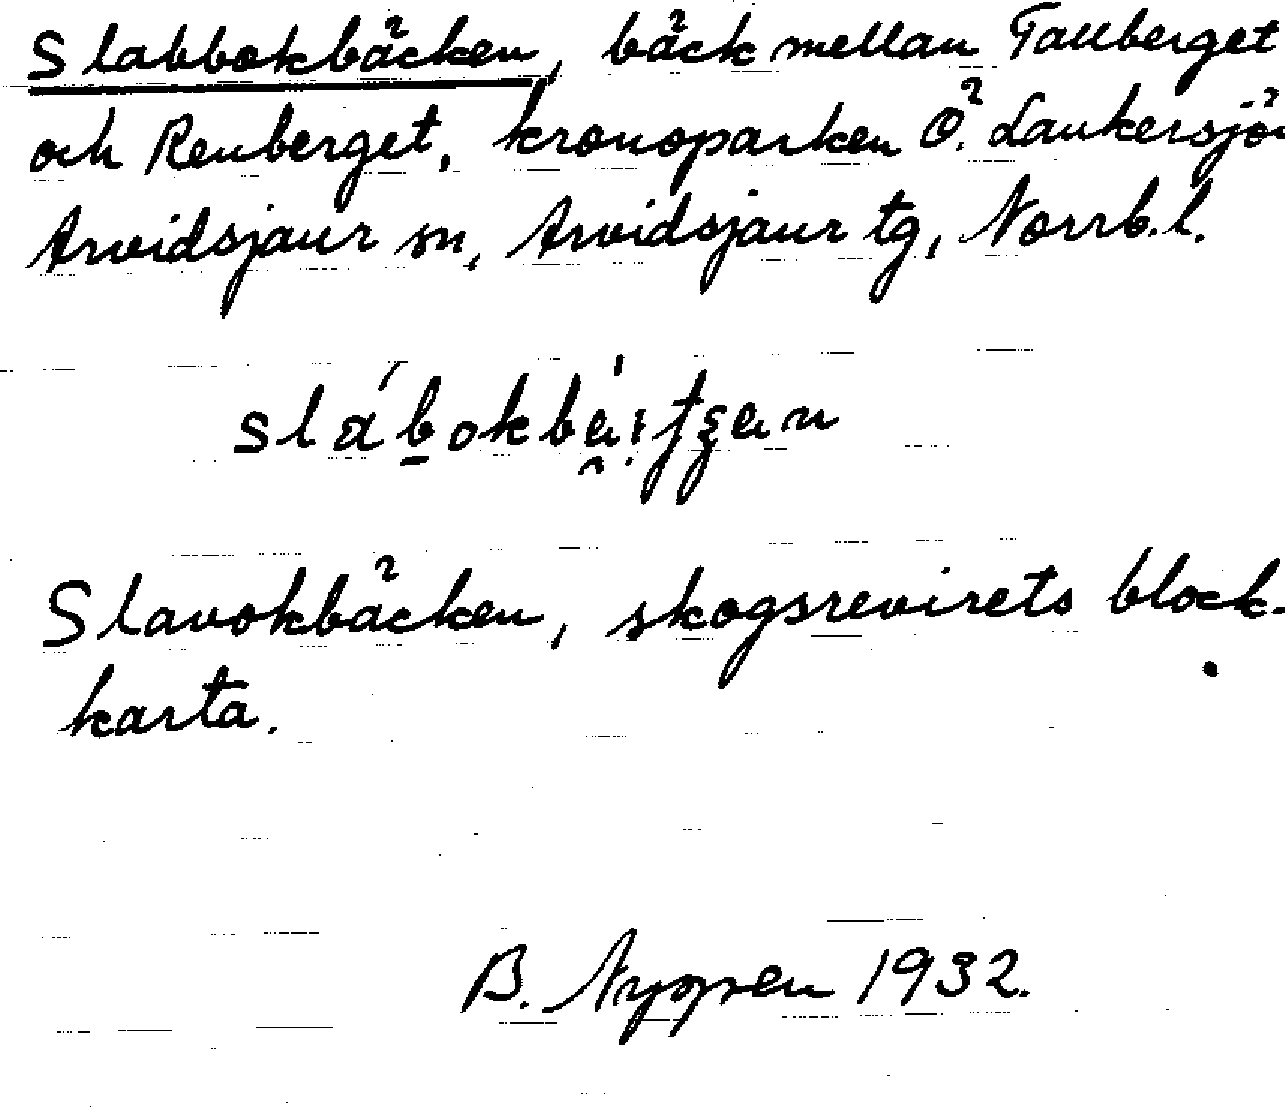 Slabbokbäcken, bäck mellan Tallberget
och Renberget, kronoparken Ö. Laukersjö
Arvidsjaur sn, Arvidsjaur tg, Norrb.l.
Slavokbäcken, skogsrevirets block-
karta.
B. Nyppen 1932.